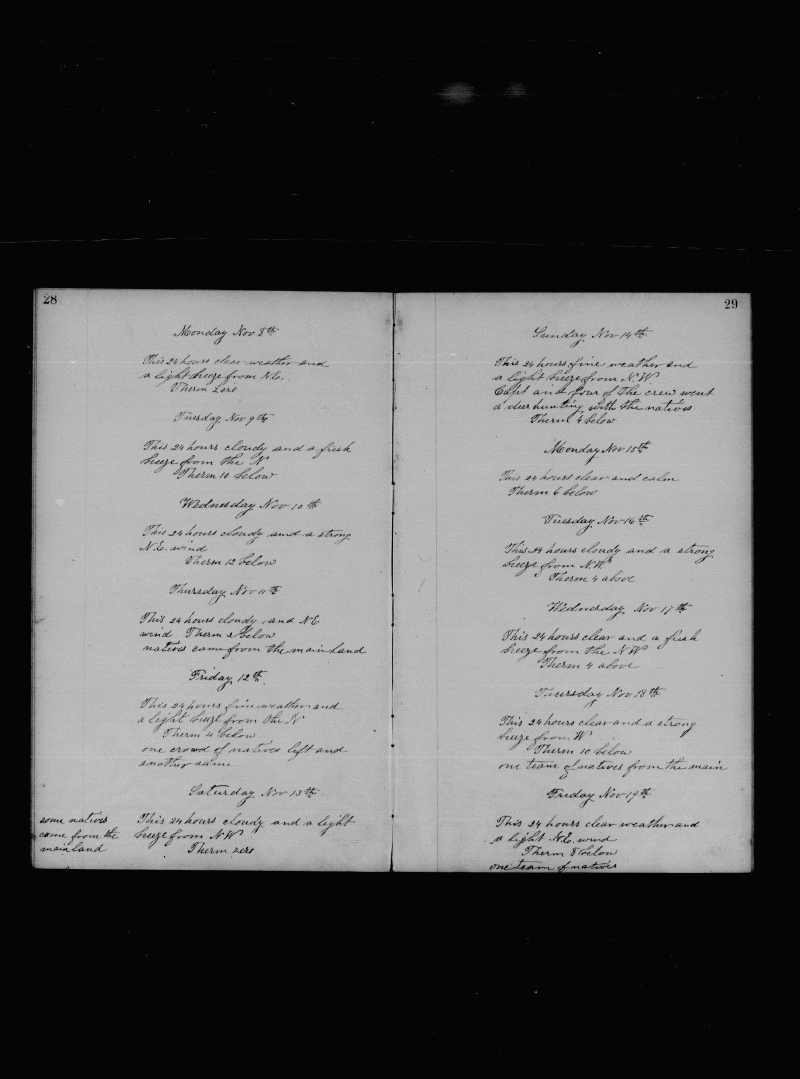 28
Monday Nov 8th
This 24 hours clear weather and
a light breeze from N.E.
Therm zero
Tuesday Nov 9th
This 24 hours cloudy and a fresh
breeze from the N
Therm 10 below
Wednesday Nov 10th
This 24 hours cloudy and a strong
N.E. wind
Therm 12 below
Thursday Nov 11th
This 24 hours cloudy and N.E.
wind Therm 2 below
natives came from the main land
Friday, 12th.
This 24 hours fine weather and
a light breeze from the N
Therm 4 below
one crowd of natives left and
another came
Saturday Nov 13th
some natives
came from the
mainland
This 24 hours cloudy and a light
breeze from N.W
Therm zero
29
Sunday Nov 14th
This 24 hours fine weather and
a light breeze from N.W
Capt and four of the crew went
a deer hunting with the natives
Therm 4 below
Monday Nov 15th
This 24 hours clear and calm
Therm 6 below
Tuesday Nov 16th
This 24 hours cloudy and a strong
breeze from N.W
Therm 4 above
Wednesday Nov 17th
This 24 hours clear and a fresh
breeze from the N.W
Therm 4 above
Thursday Nov 18th
This 24 hours clear and a strong
breeze from W
Therm 10 below
one team of natives from the main
Friday Nov 19th
This 24 hours clear weather and
a light N.E. wind
Therm 8 below
one team of natives